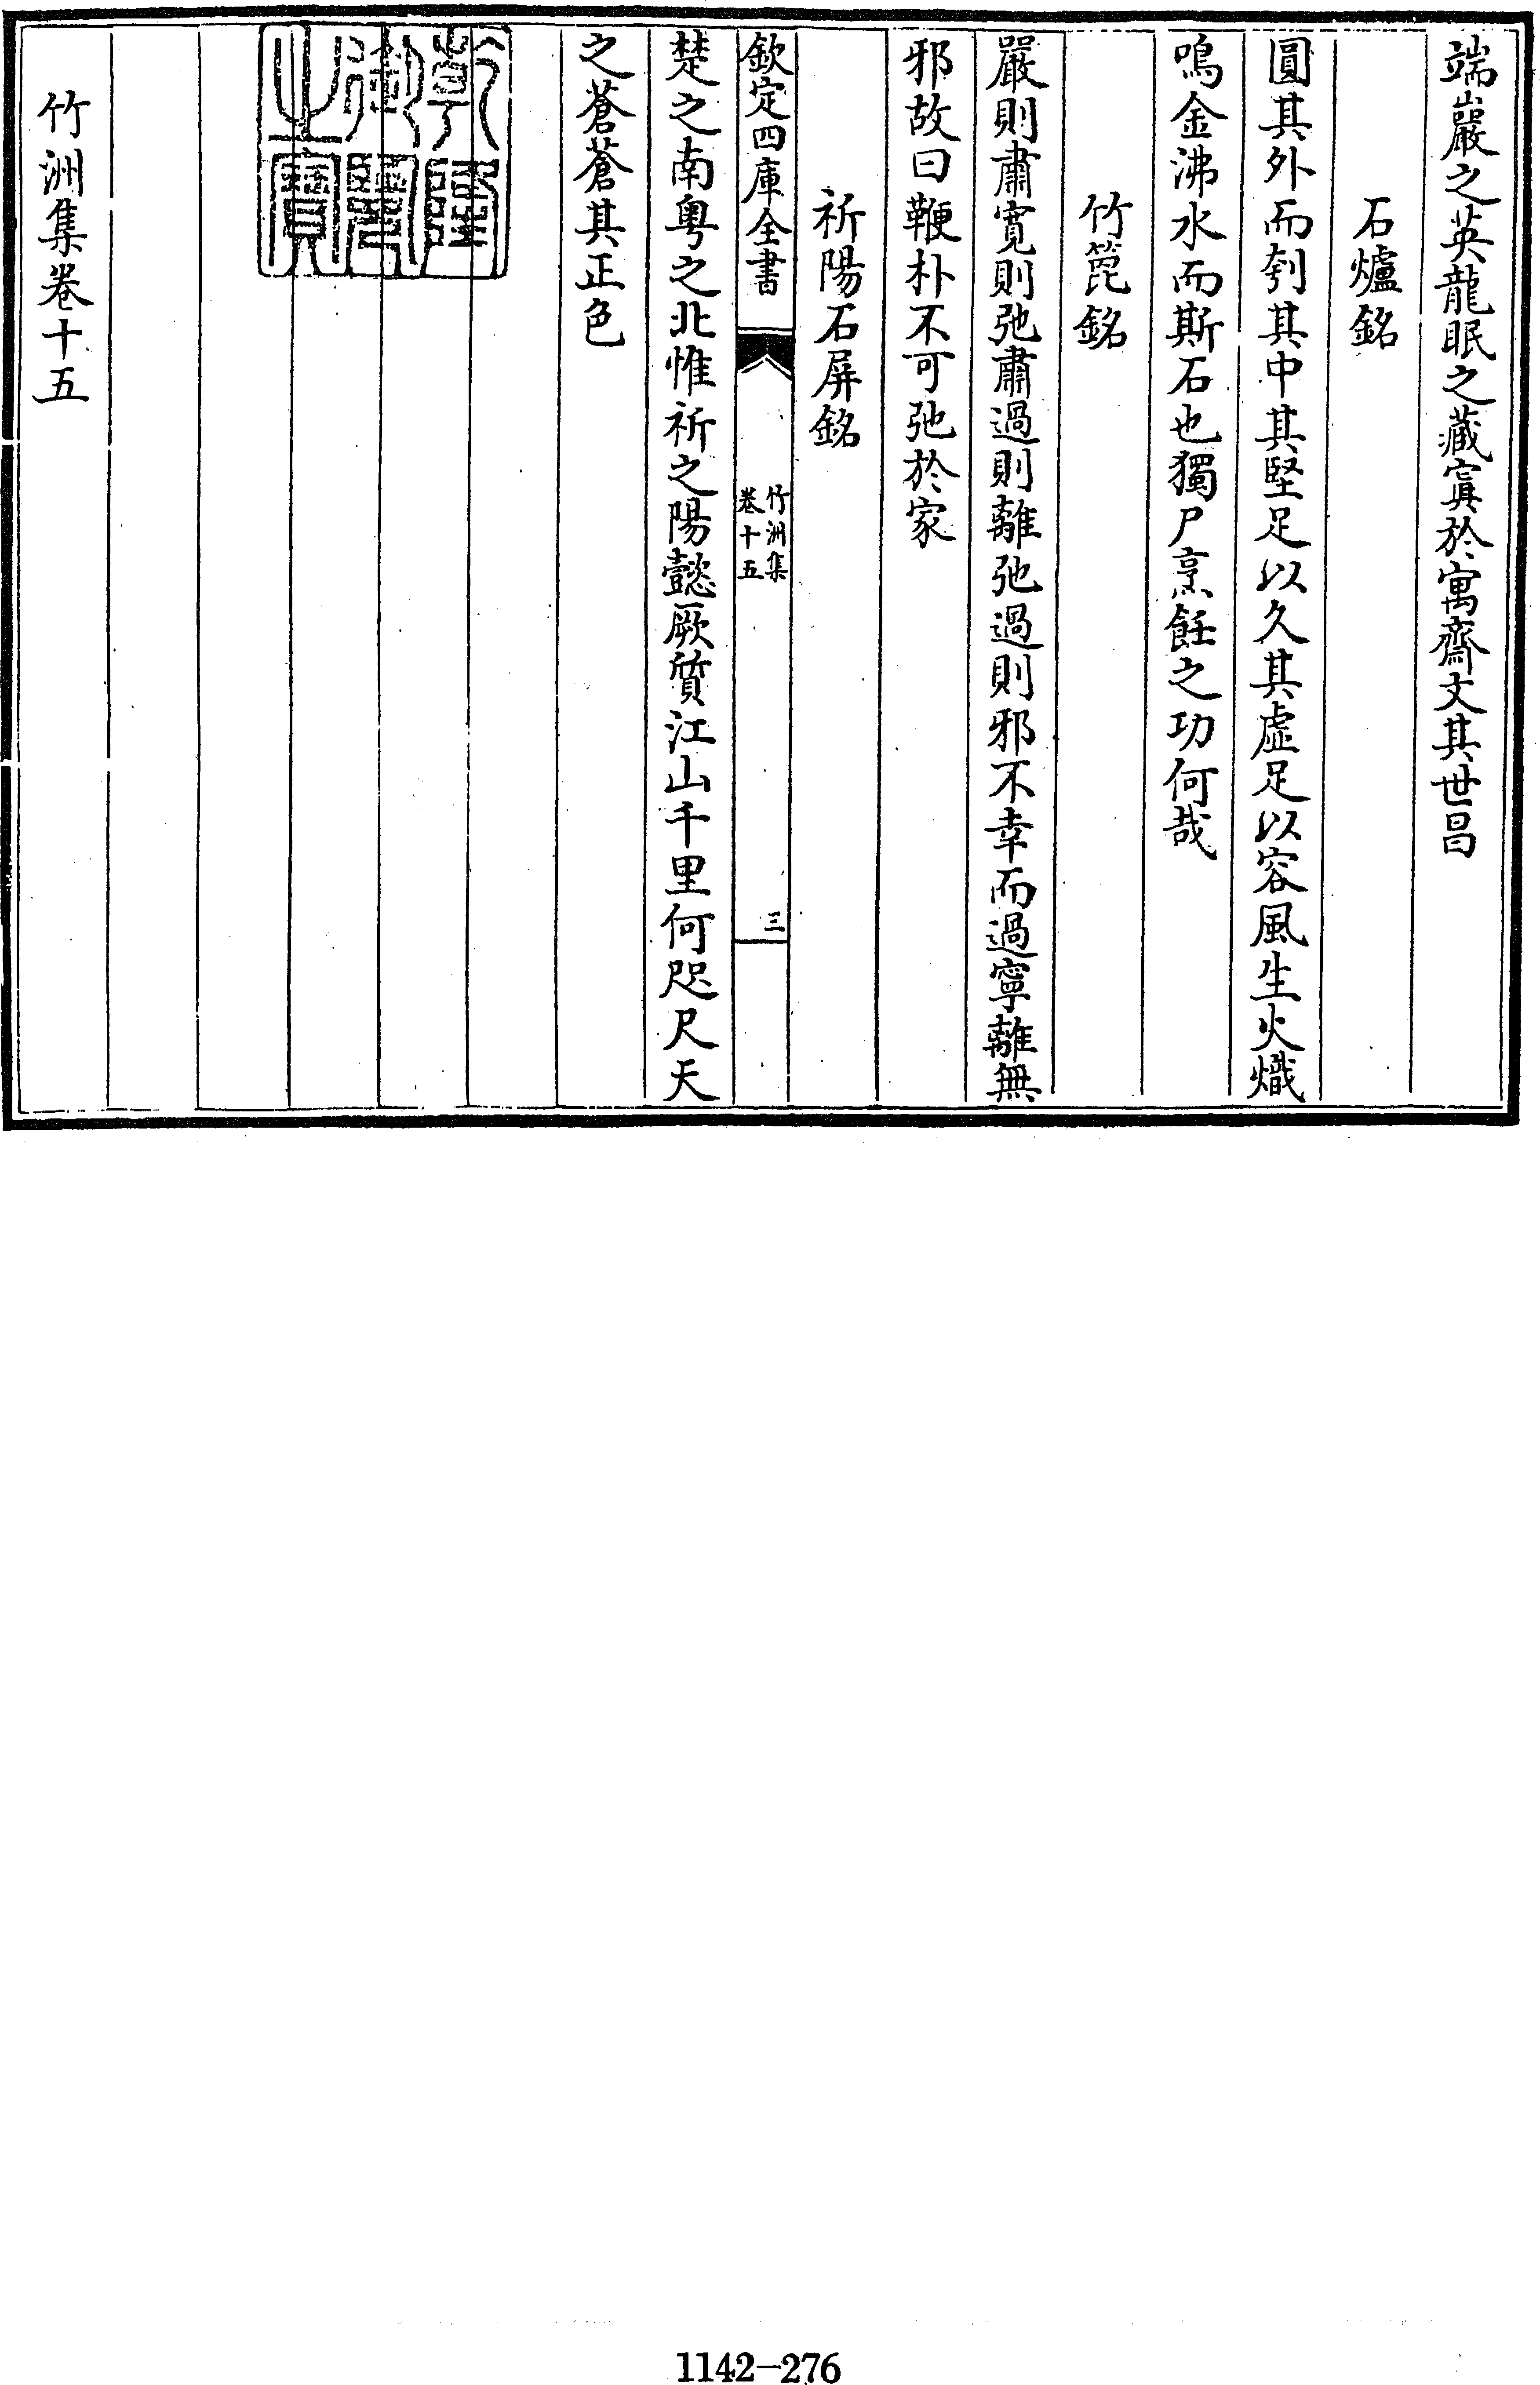 端巖之英龍眠之藏寘於寓齋文其世昌
石爐銘
圓其外而刳其中其堅足以久其虛足以容風生火熾
鳴金沸水而斯石也獨尸烹飪之功何哉
竹箆銘
嚴則肅寛則弛肅過則離弛過則邪不幸而過寧離無
邪故曰鞭朴不可弛於家
祈陽石屏銘
欽定四庫全書
竹洲集
卷十五
三
楚之南粤之北惟祈之陽懿厥質江山千里何咫尺天
之蒼蒼其正色
乾隆御覽之寶
竹洲集卷十五
1142-276